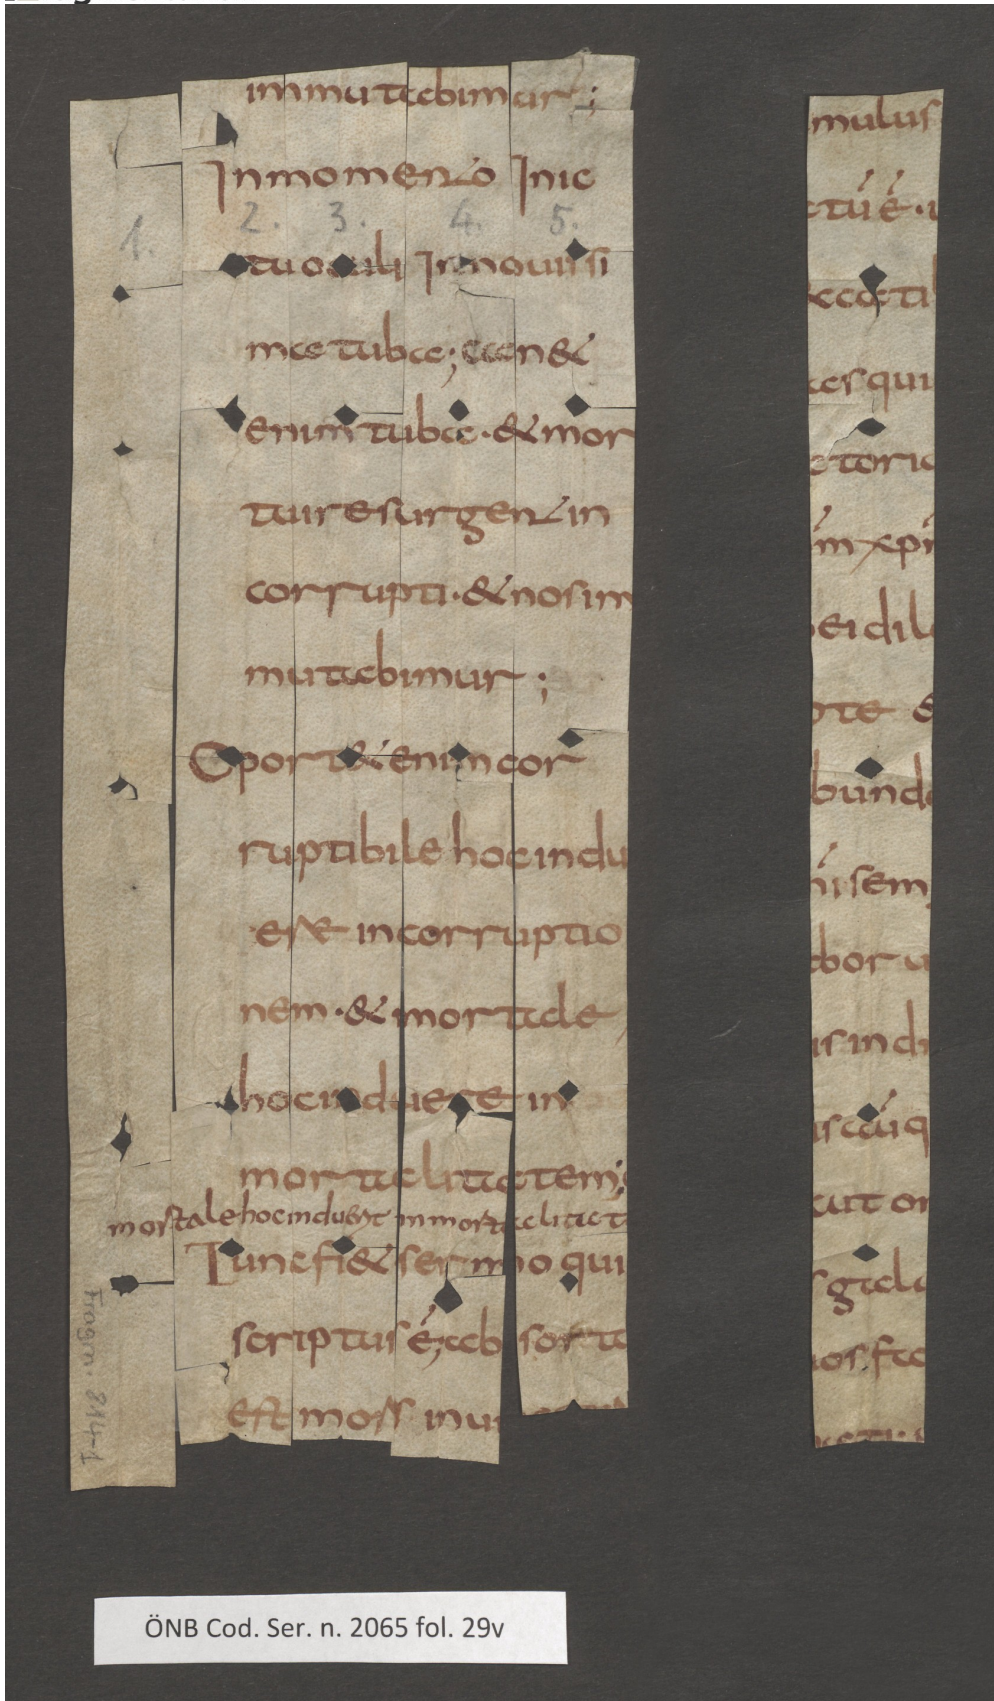 immutabimur;
In momento In ic
tu oculi In nouissi
ma tuba; canet
enim tuba · & mor
tui resurgent in
corrupti · & nos im
mutabimur;
Oport& enim cor
ruptibile hoc indu
ere incorruptio
nem · & mortale
hoc induere in
mortalitatem;
mortale hoc induerit inmortalitat
Tunc fi& sermo qui
scriptus é; absorta
est mors inui
mulus
ctú é · u
es qui
ctoria
ím xpí
ei dile
bunda
ní sem
abor u
us in d
us cúq
aut or
s gala
os fac
1. 2. 3. 4. 5.
Fragm. 814-1
ÖNB Cod. Ser. n. 2065 fol. 29v